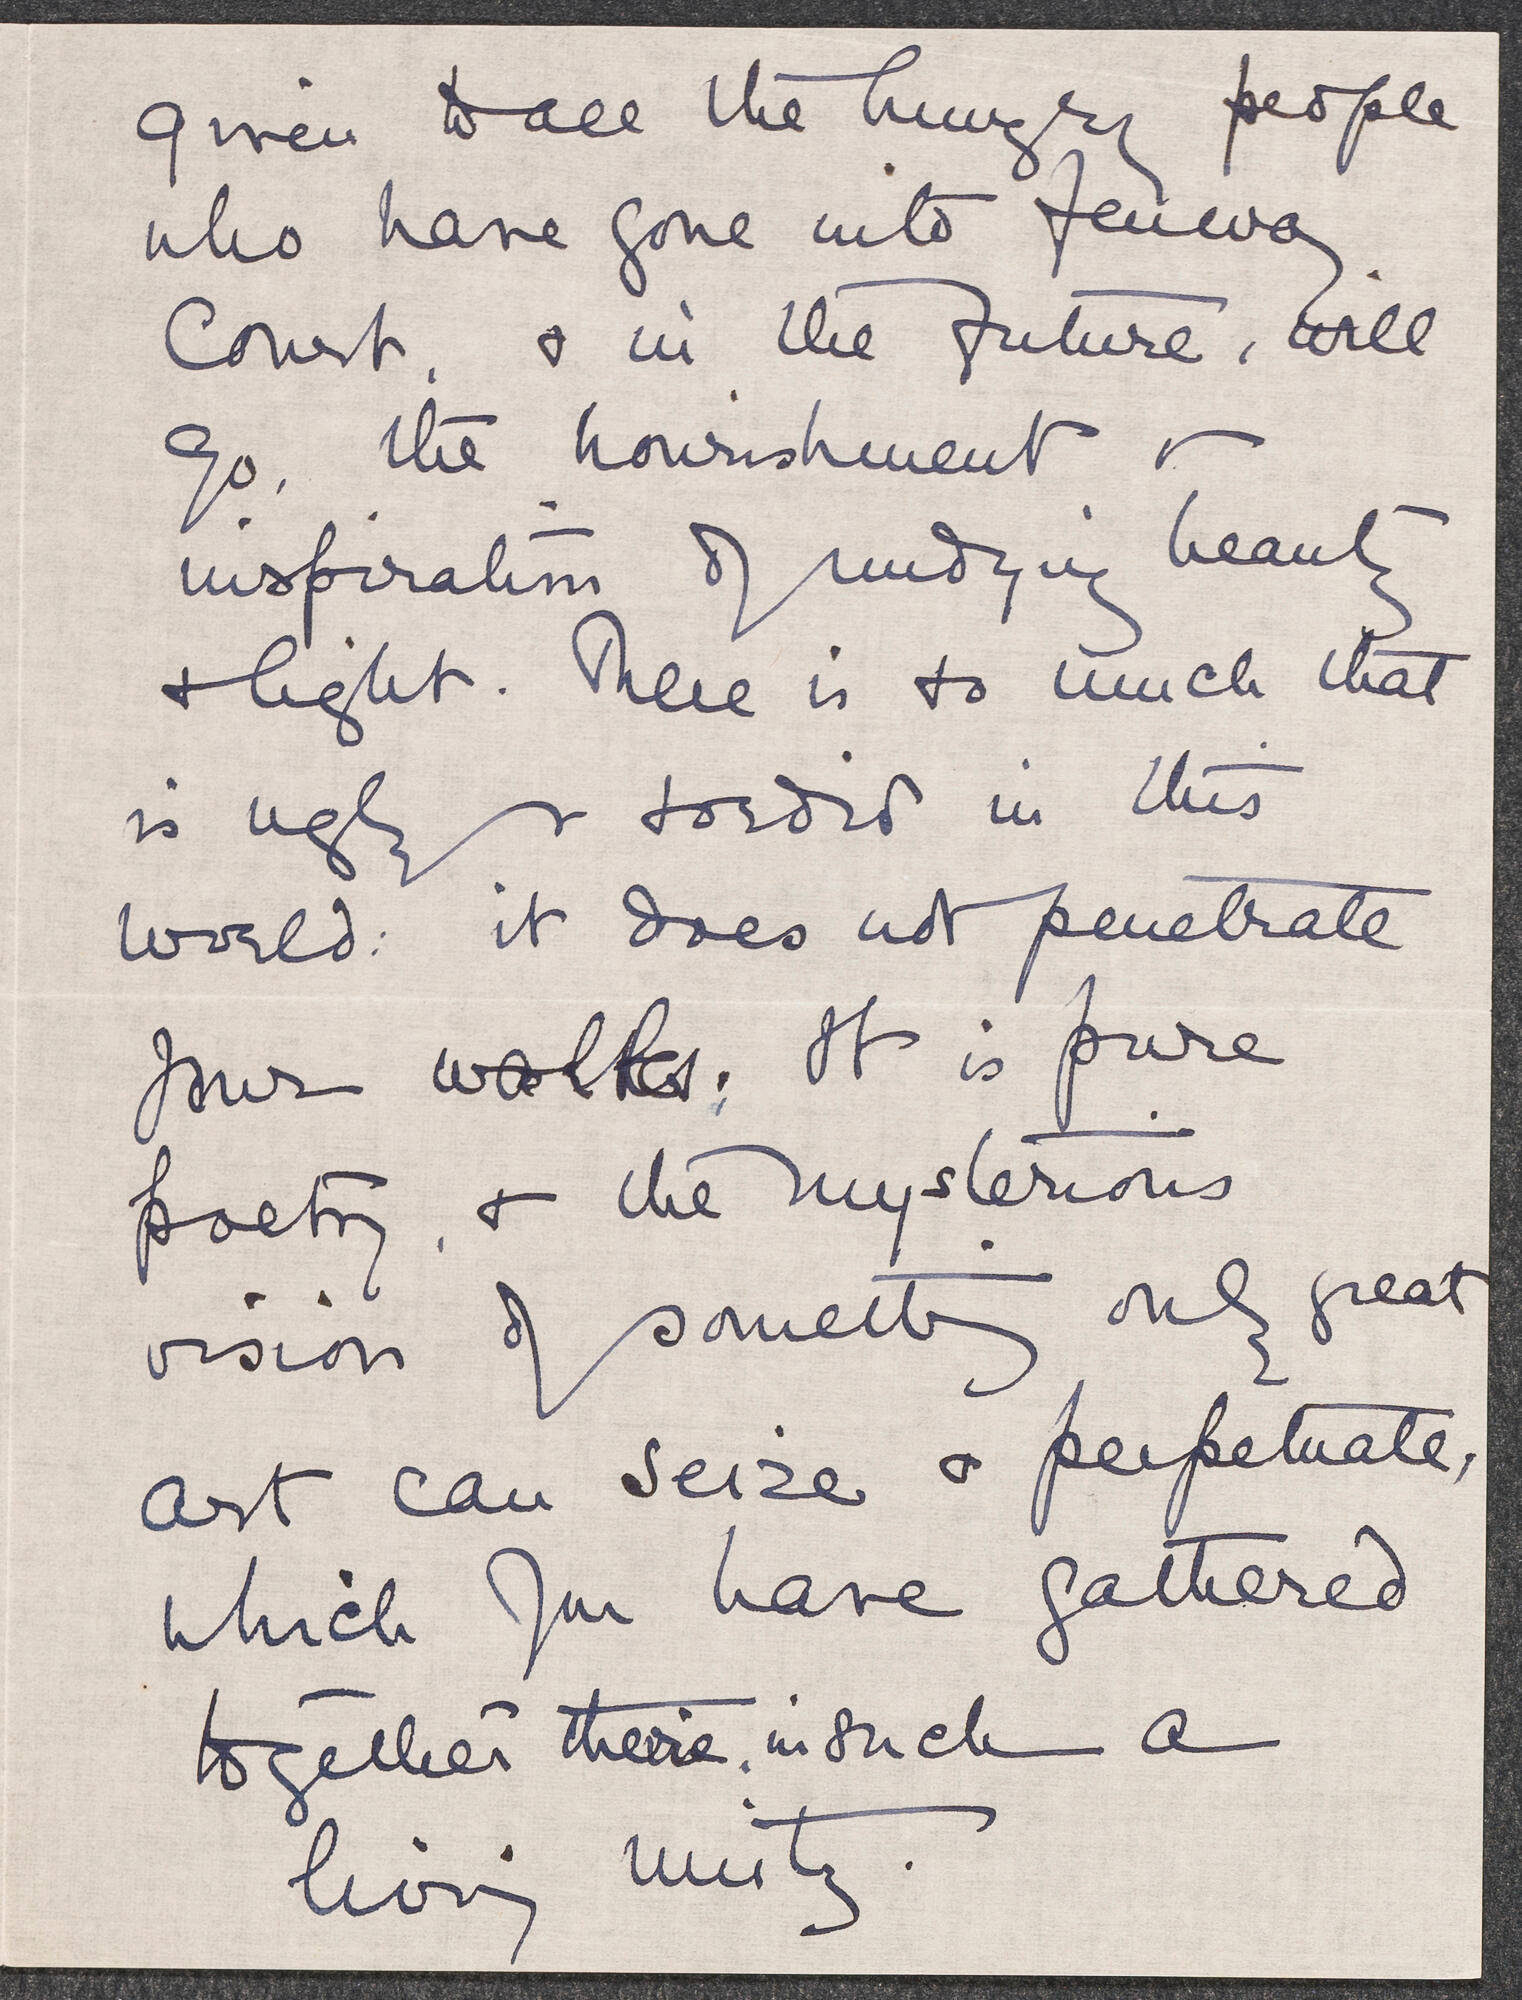 given to all the hungry people
who have gone into Fenway
Court, & in the future, will
go, the nourishment &
inspiration of undying beauty
& light. There is so much that
is ugly & sordid in this
world: it does not penetrate
your walls; It is pure
poetry, & the mysterious
vision of something only great
art can seize & perpetuate,
which you have gathered
together there, in such a
living unity.